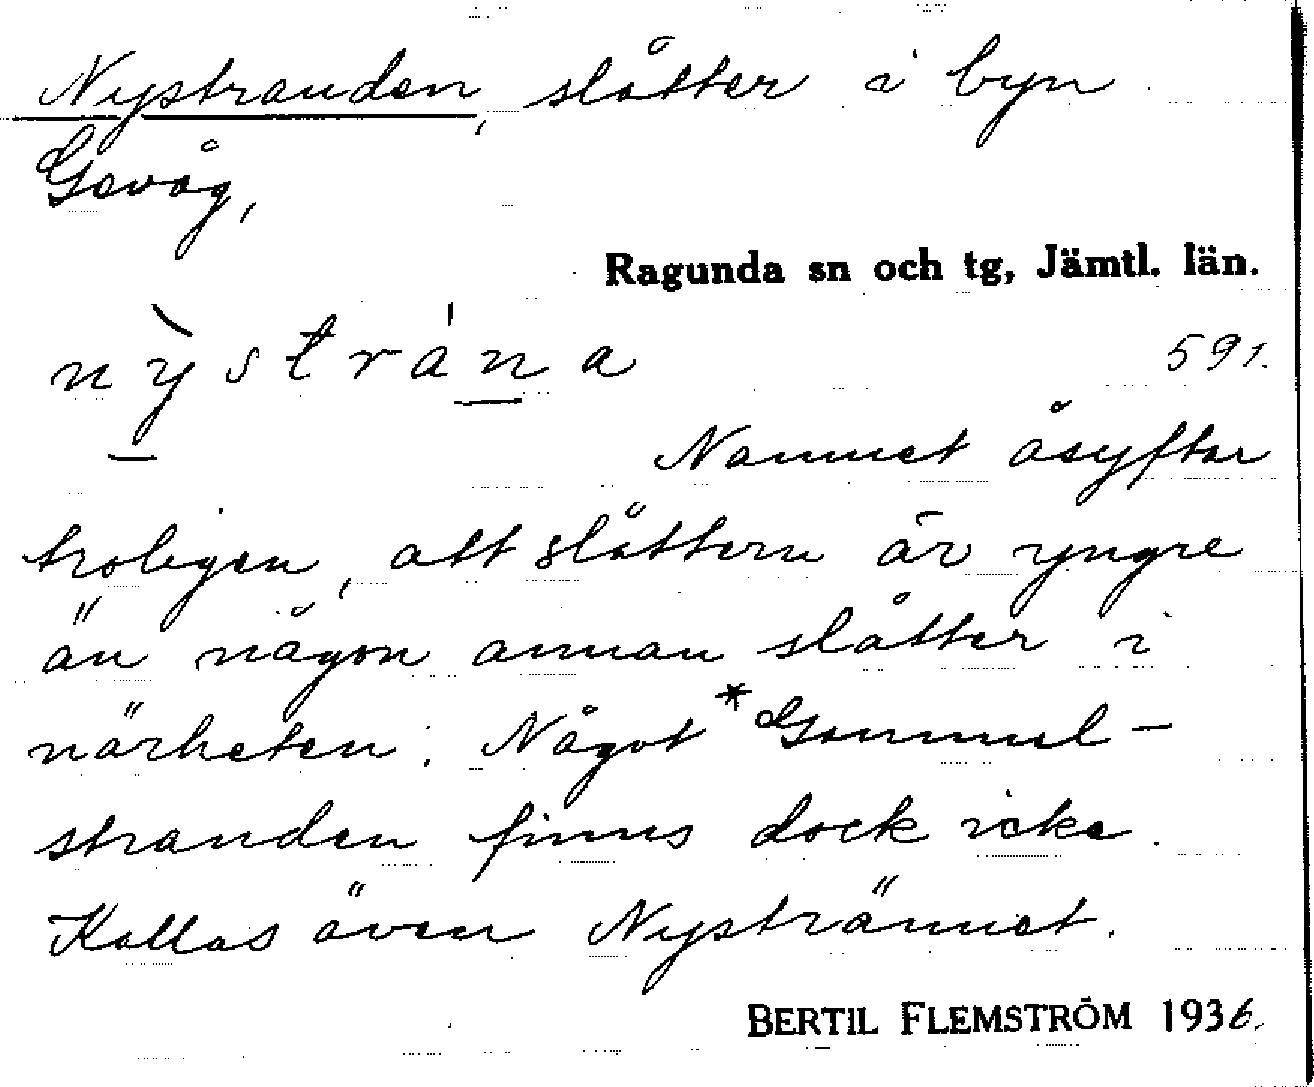 Nystranden, slåtter i byn
Gevåg,
Ragunda sn och tg, Jämtl. län.
nỳstrána
591.
Namnet åsyftar
troligen, att slåttern är yngre
än någon annan slåtter i
närheten. Något *Gammel-
stranden finns dock icke.
Kallas även Nystrännet.
BERTIL FLEMSTRÖM 1936.